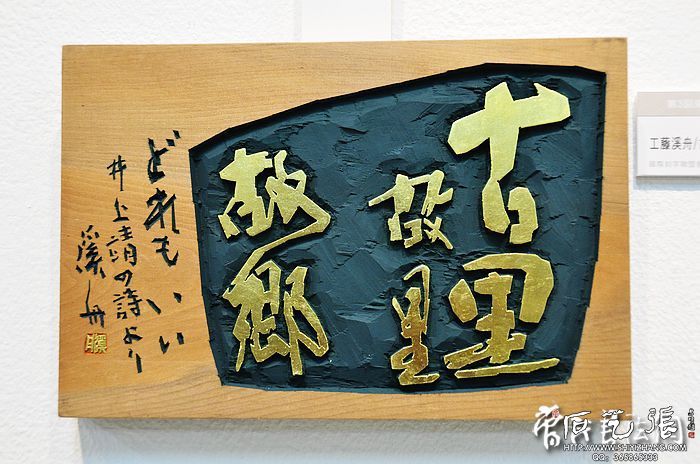 古里
故里
故郷
どれもいい
井上靖の詩より
溪舟
工藤溪舟/
HTTP://WWW.SHYZHANG.COM
QQ: 365868333